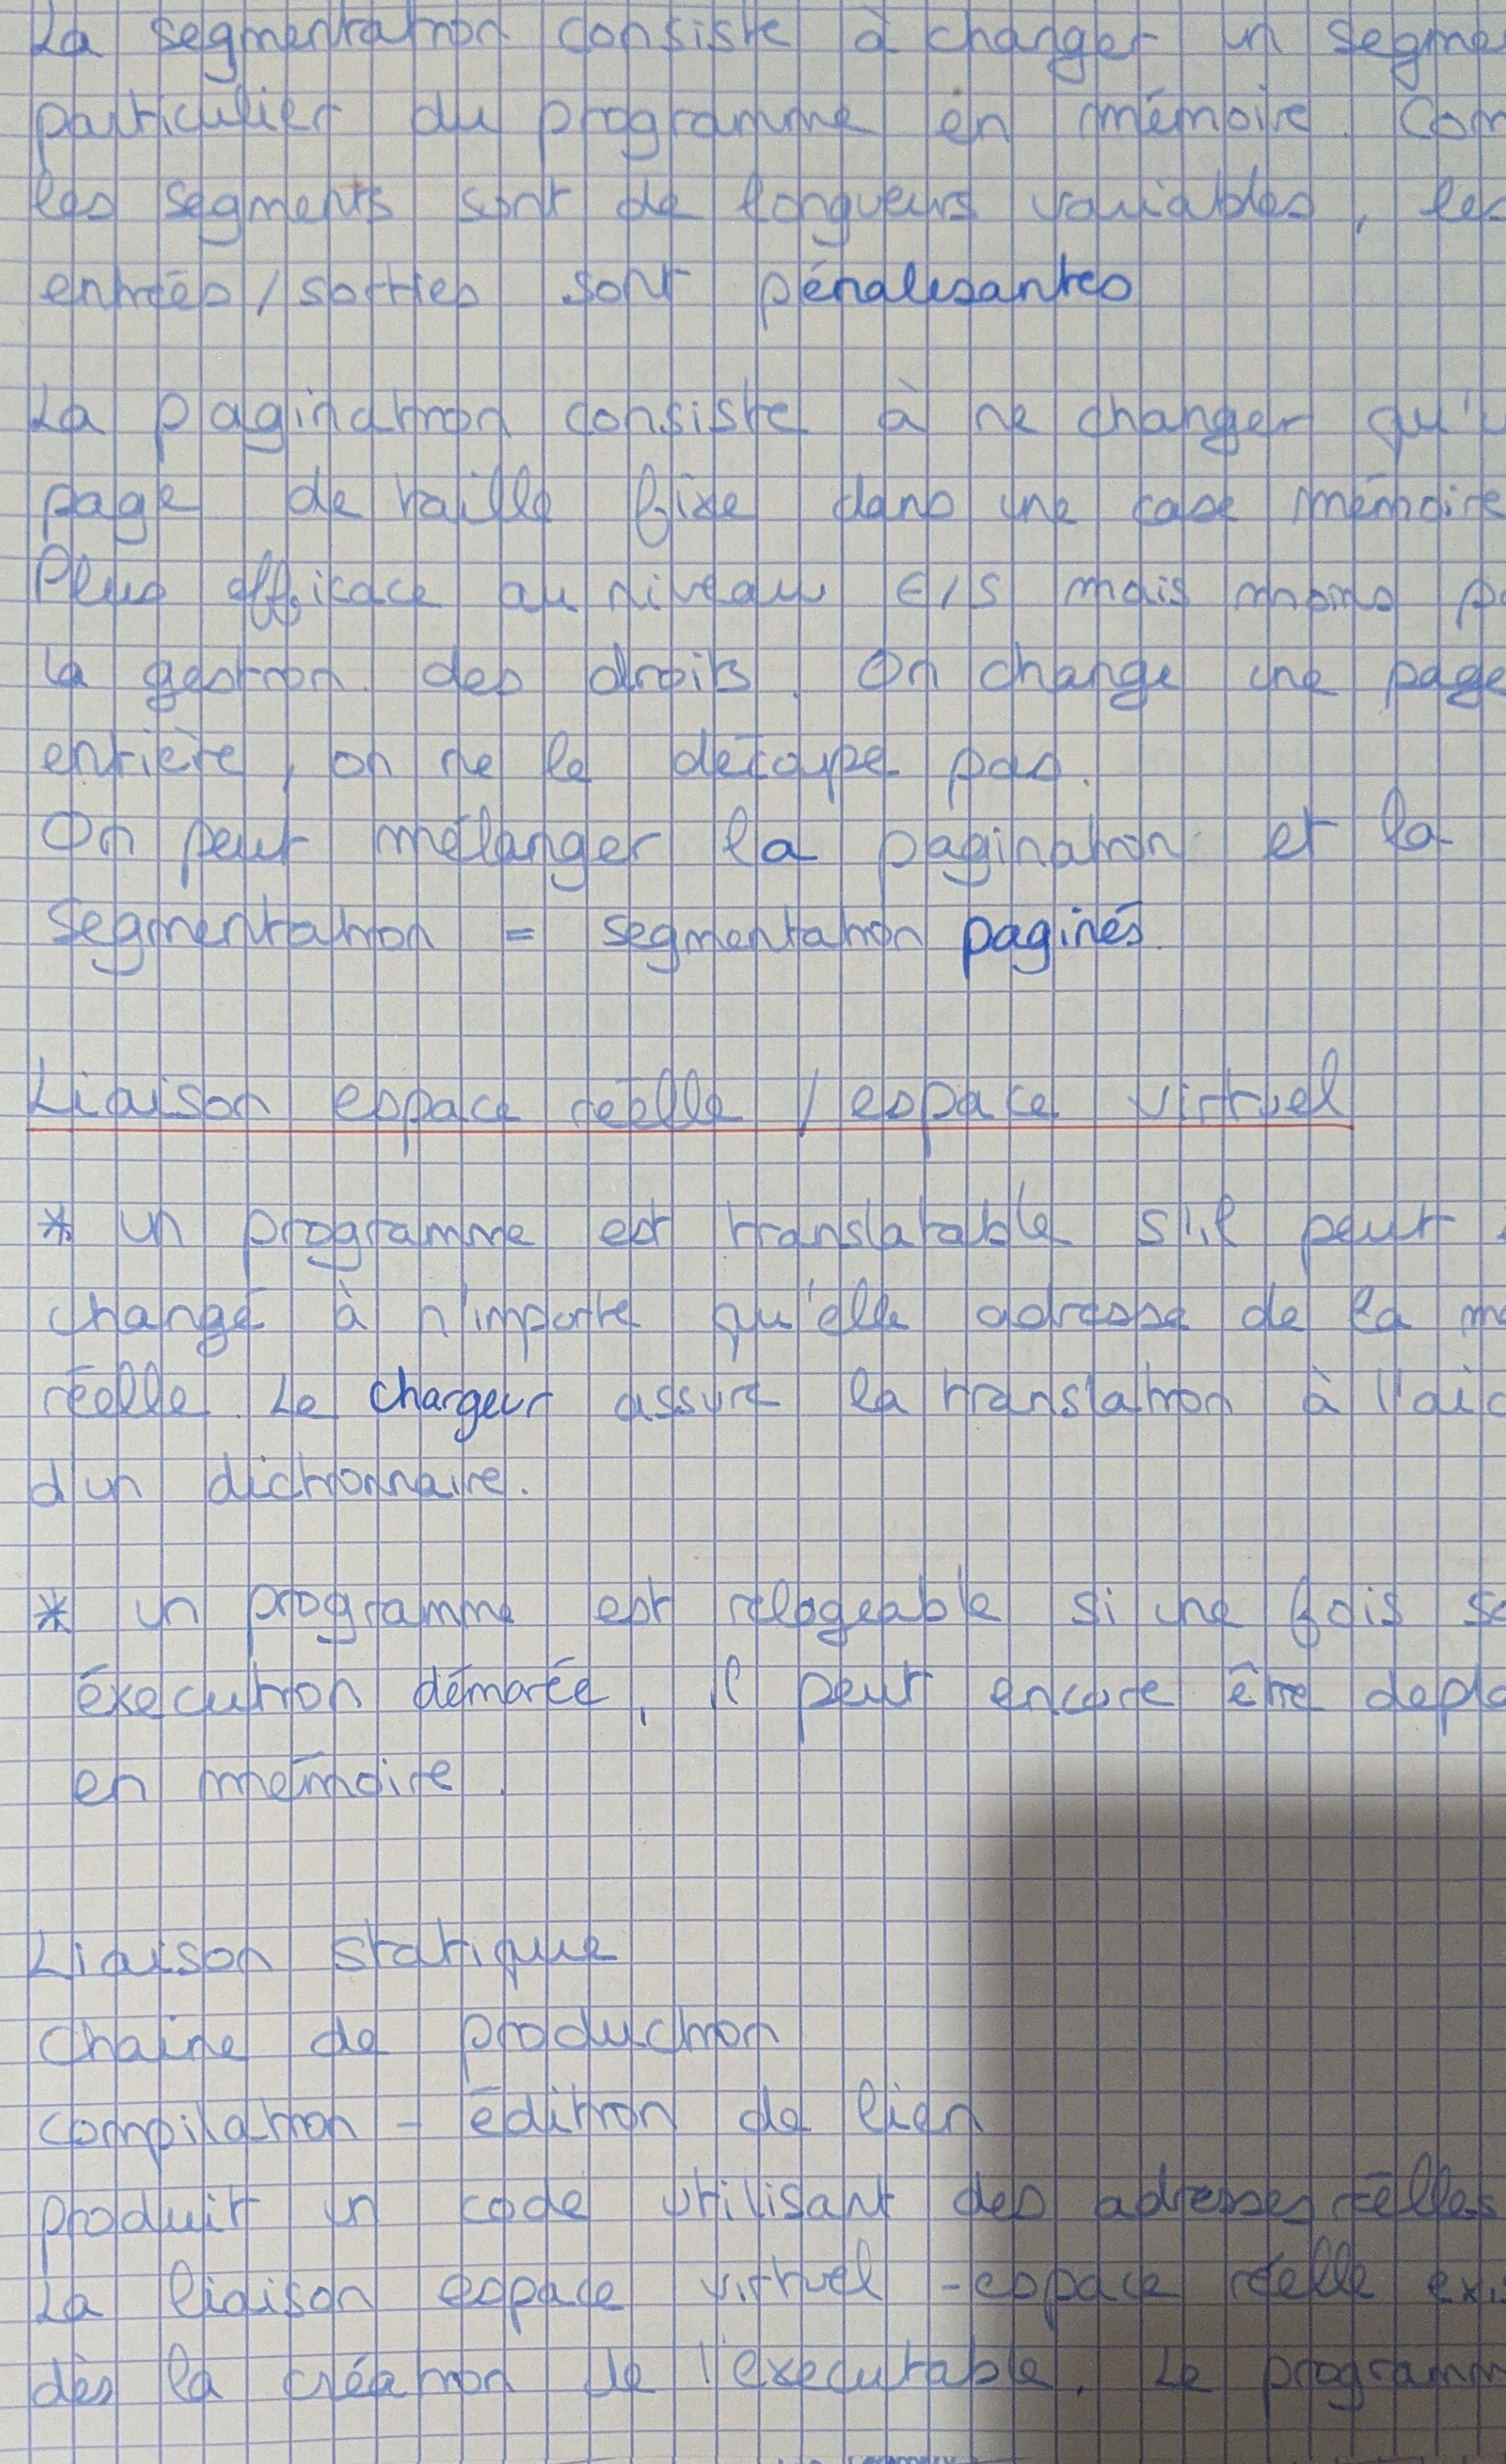 La segmentation consiste à changer un segme
particulier du programme en mémoire. Com
les segments sont de longueurs variables, les
entrées / sorties sont pénalisantes
La pagination consiste à ne changer qu'u
page de taille fixe dans une case mémoire
Plus efficace au niveau E/S mais moins po
la gestion des droits. On change une page
entière, on ne le découpe pas.
On peut mélanger la pagination et la
segmentation = segmentation paginés
Liaison espace réelle / espace virtuel
* un programme est translatable s'il peut
changé à n'importe qu'elle adresse de la mé
réelle. Le chargeur assure la translation à l'aid
d'un dictionnaire.
* un programme est relogeable si une fois so
éxecution démarée, il peut encore être depla
en mémoire.
Liaison statique
chaine de production
compilation - édition de lien
produit un code utilisant des adresses réelles
La liaison espace virtuel - espace réelle exis
dès la création de l'executable. Le programm